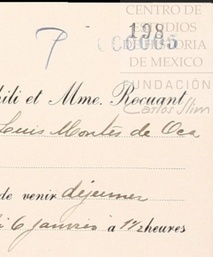 CENTRO DE
ESTUDIOS
DE HISTORIA
DE MEXICO
FUNDACIÓN
Carlos Slim
198
et Mme. Rocuant
Luis Montes de Oca
de venir déjeuner
6 janvier à 1½ heures